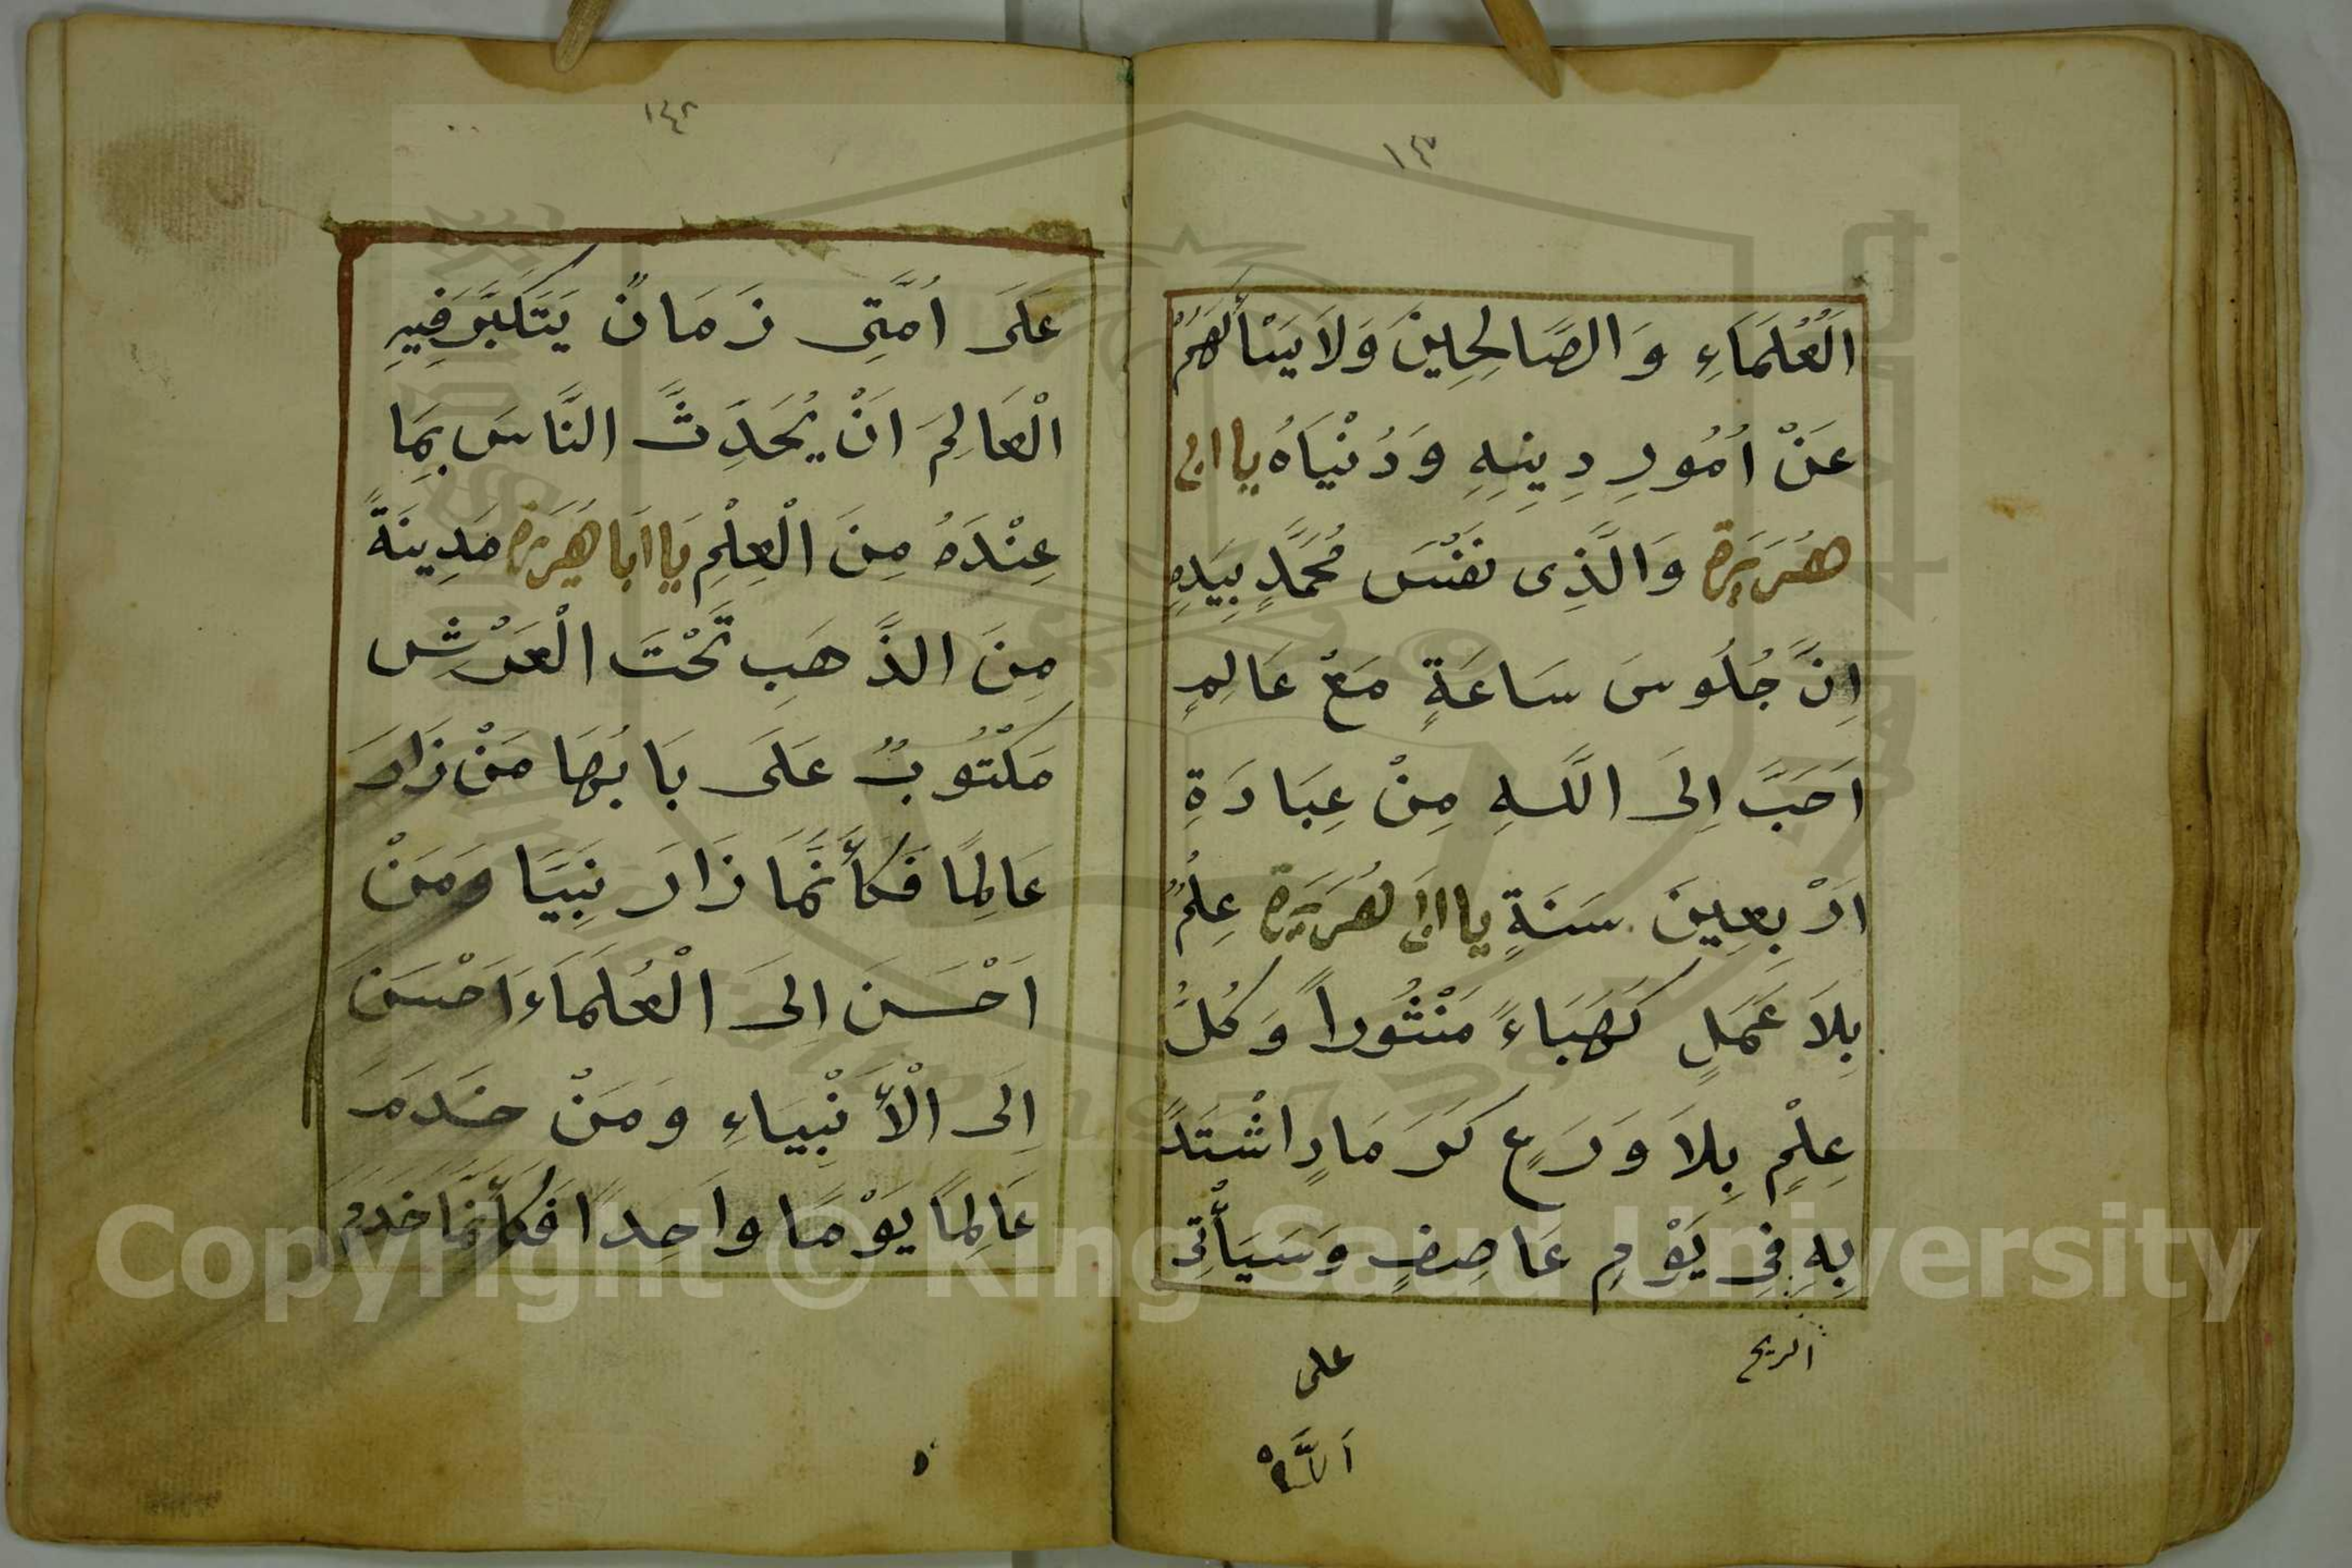 اَلْعُلَمَاءِ وَالصَّالِحِينَ وَلَا يَسْأَلُهُمْ
عَنْ اُمُورِ دِينِهِ وَدُنْيَاهُ يا ابى
هُرَيْرَة وَالَّذِى نَفْسَ مُحَمَّدٍ بِيَدِهِ
اِنَّ جُلُوسَ سَاعَةٍ مَعْ عَالِمٍ
اَحَبَّ اِلَى اللَّهِ مِنْ عِبَادَةِ
اَرْبِعِينَ سَنَةٍ يا ابى هُرَيْرَة عِلْمٌ
بِلَا عَمَلٍ كَهَبَاءً مَنْثُوراً وَكُلُّ
عِلْمٍ بِلَا وَرَعٍ كَرَمَادٍ اشْتَدَّ
بِهِ فِى يَوْمٍ عَاصِفٍ وَسَيَأْتِى
الريح
على
١٤٢
عَلَى اُمَّتِى زَمَانٌ يَتَكَبَّرُ فِيهِ
الْعَالِمَ اَنْ يُحَدِّثَ النَّاسَ بِمَا
عِنْدَهُ مِنَ الْعِلْمِ يَا اَبَا هُرَيْرَة مَدِينَةً
مِنَ الذَّهَبِ تَّحْتَ الْعَرْشِ
مَكْتُوبٌ عَلَى بَابُهَا مَنْ زَارَ
عَالِمًا فَكَأَنَّمَا زَارَ نَبِيًّا وَمَنْ
اَحْسَنَ اِلَى الْعُلَمَاءَ اَحْسَنَ
اِلَى الْأَنْبِيَاءِ وَمَنْ خَدَمَ
عَالِمًا يَوْمًا وَاحِدًا فَكَأَنَّمَا خَدَمَ
Copyright © King Saud University